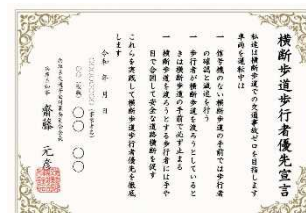 横断歩道歩行者優先宣言
私達は横断歩道での交通事故ゼロを目指します
車両を運転中は
一 信号機のない横断歩道の手前では歩行者
の確認と減速を行う
一 歩行者が横断歩道を渡ろうとしていると
きは横断歩道の手前で必ず止まる
一 横断歩道を渡ろうとする歩行者には手や
目で合図して安全な道路横断を促す
これらを実践して横断歩道歩行者優先を徹底
します
令和 年 月 日
〇〇
〇〇
兵庫県知事 齋藤 元彦